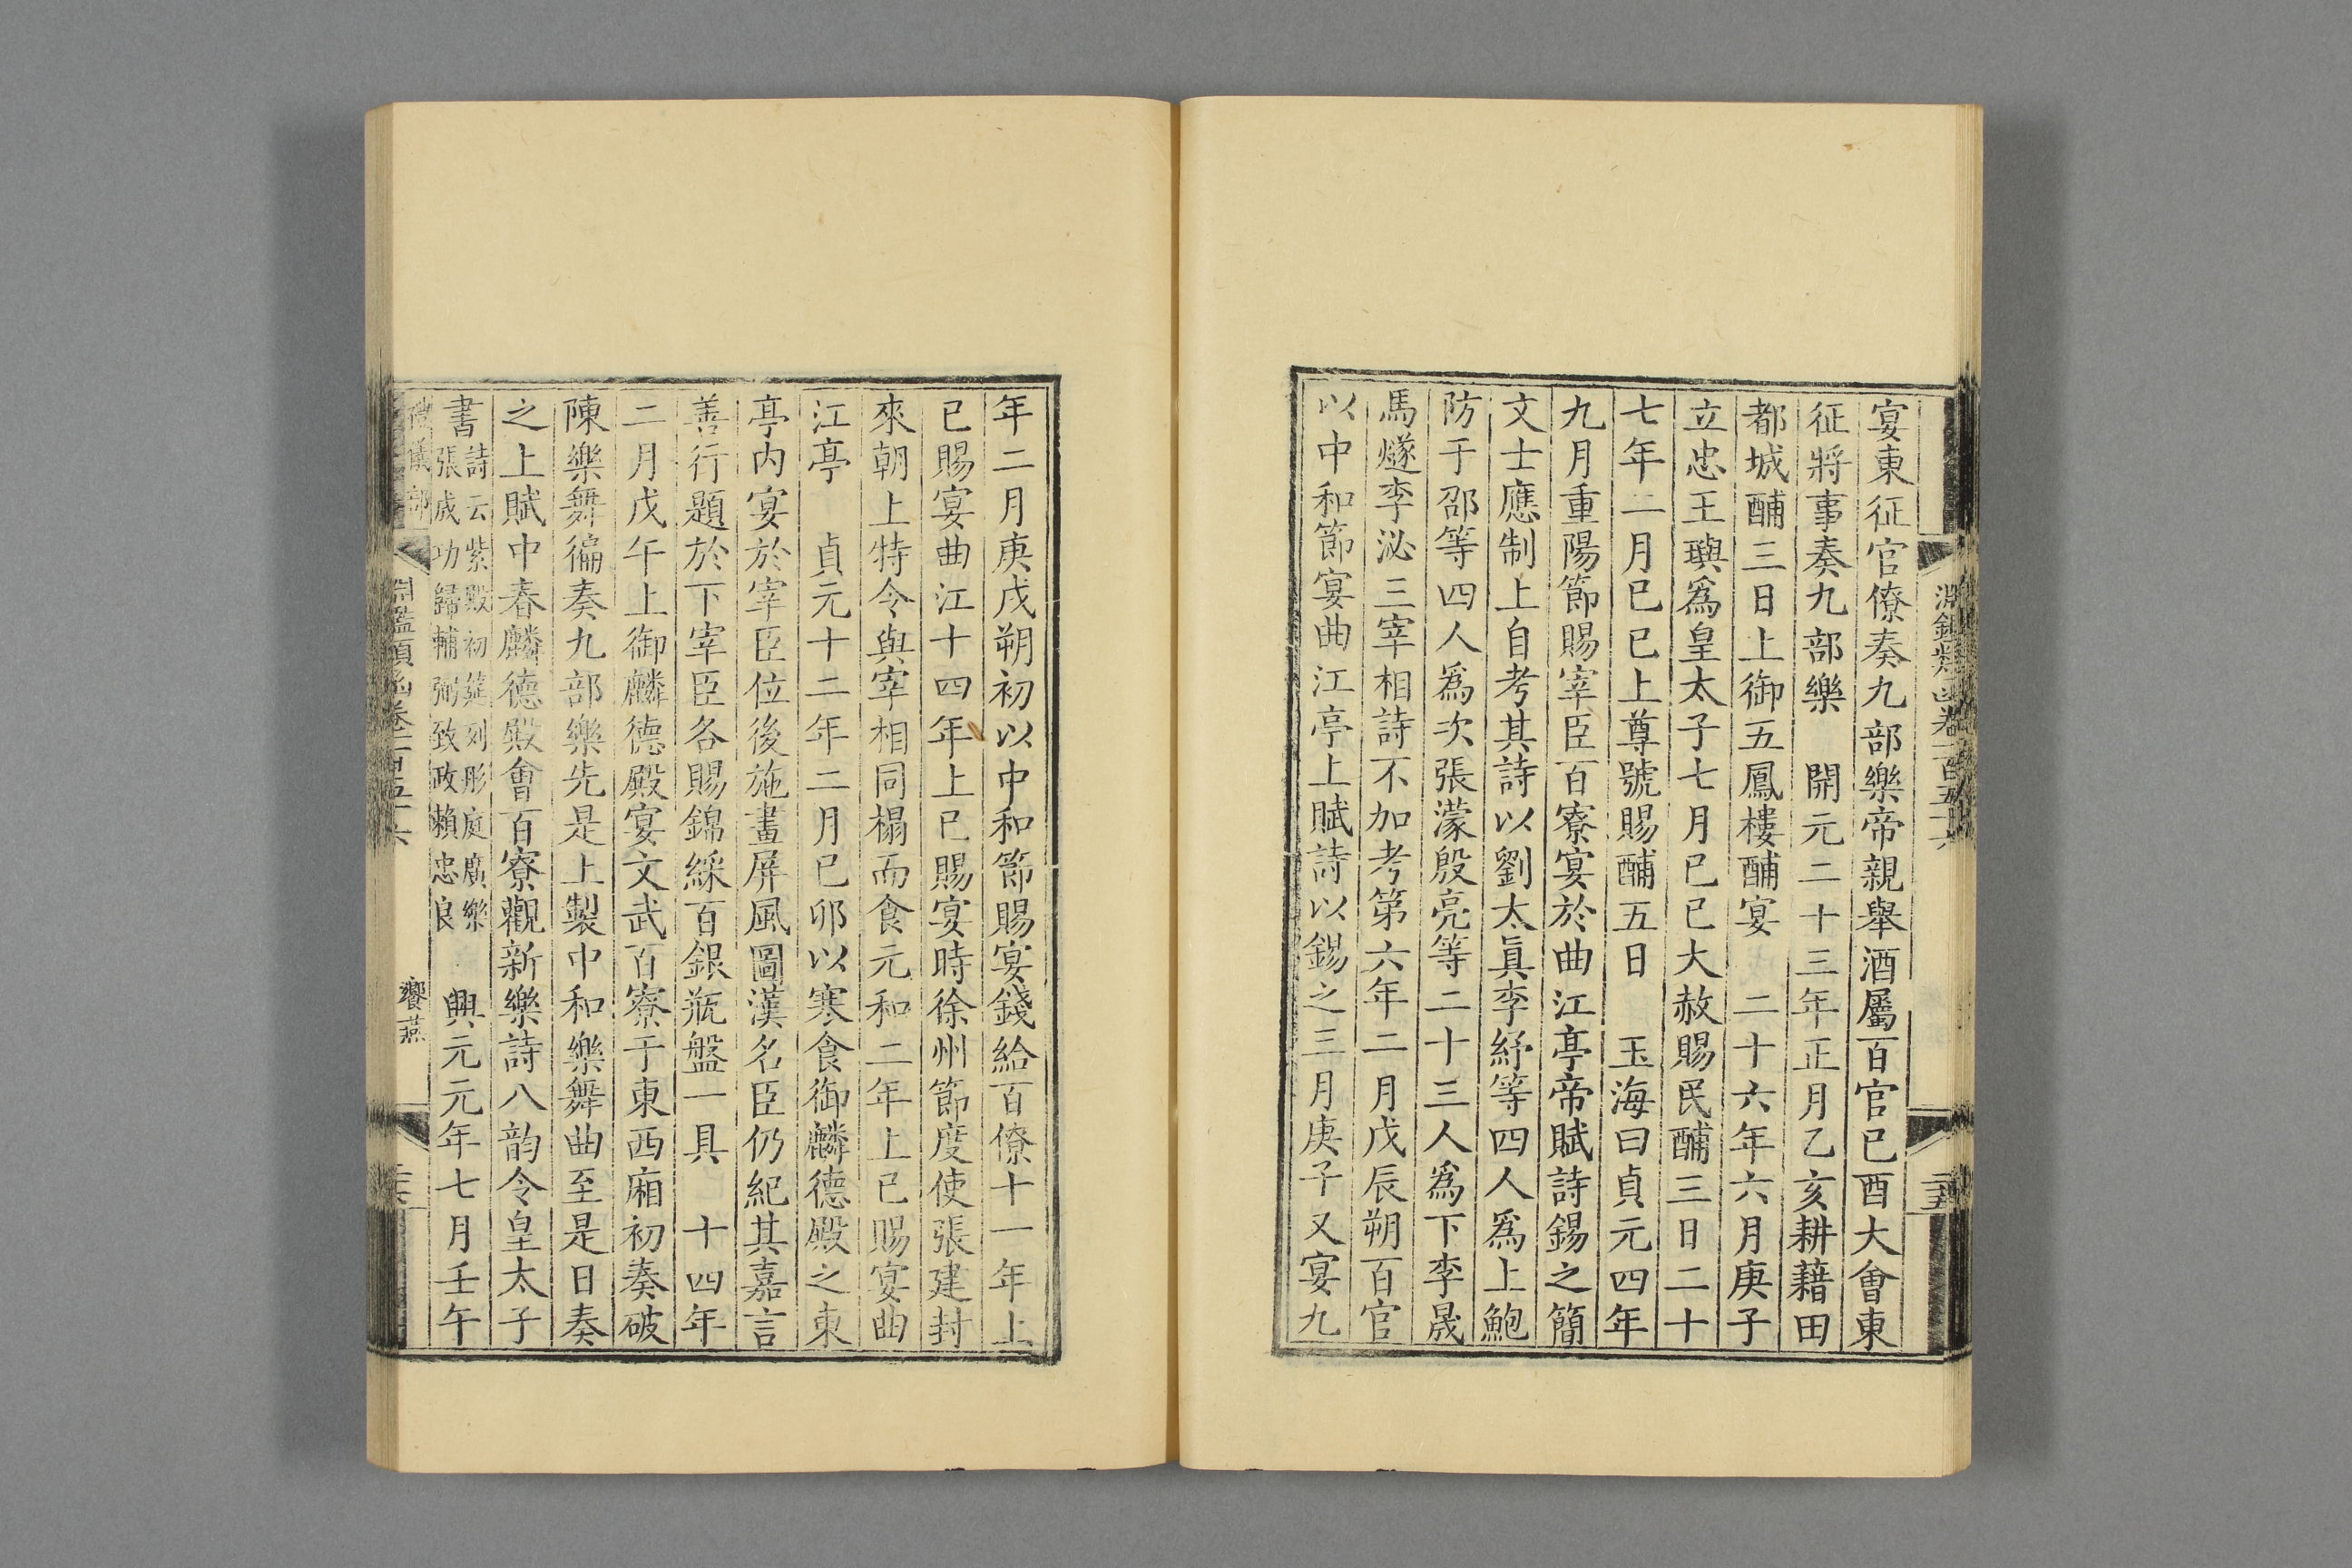 宴東征官僚奏九部樂帝親舉酒屬百官已酉大會東
征將事奏九部樂　開元二十三年正月乙亥耕藉田
都城酺三日上御五鳳樓酺宴　二十六年六月庚子
立忠王璵爲皇太子七月已已大赦賜民酺三日二十
七年二月已已上尊號賜酺五日　玉海曰貞元四年
九月重陽節賜宰臣百寮宴於曲江亭帝賦詩錫之簡
文士應制上自考其詩以劉太眞李紓等四人爲上鮑
防于邵等四人爲次張濛殷亮等二十三人爲下李晟
馬燧李泌三宰相詩不加考第六年二月戊辰朔百官
以中和節宴曲江亭上賦詩以錫之三月庚子又宴九
年二月庚戌朔初以中和節賜宴錢給百僚十一年上
已賜宴曲江十四年上已賜宴時徐州節度使張建封
來朝上特令與宰相同榻而食元和二年上已賜宴曲
江亭　貞元十二年二月已卯以寒食御麟德殿之東
亭內宴於宰臣位後施畫屏風圖漢名臣仍紀其嘉言
善行題於下宰臣各賜錦綵百銀瓶盤一具　十四年
二月戊午上御麟德殿宴文武百寮于東西廂初奏破
陳樂舞徧奏九部樂先是上製中和樂舞曲至是日奏
之上賦中春麟德殿會百寮觀新樂詩八韵令皇太子
書詩云紫殿初筵列彤庭廣樂張成功歸輔弼致政賴忠良　興元元年七月壬午
淵鑑類函卷一百五十六
二十五
禮儀部
淵鑑類函卷一百五十六
饗燕